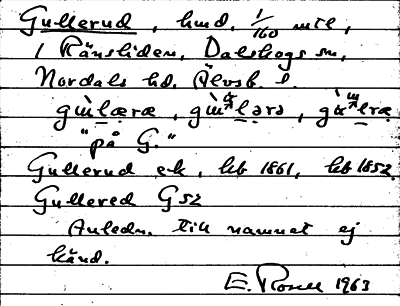 Gullerud, hmd. 1/160 mtl,
i Ränsliden, Dalskogs sn,
Nordals hd. Älvsb. l.
"på G."
Gullerud ek, hfb 1861, hfb 1852.
Gullered G52
Anledn. till namnet ej
känd.
E. Rosell 1963